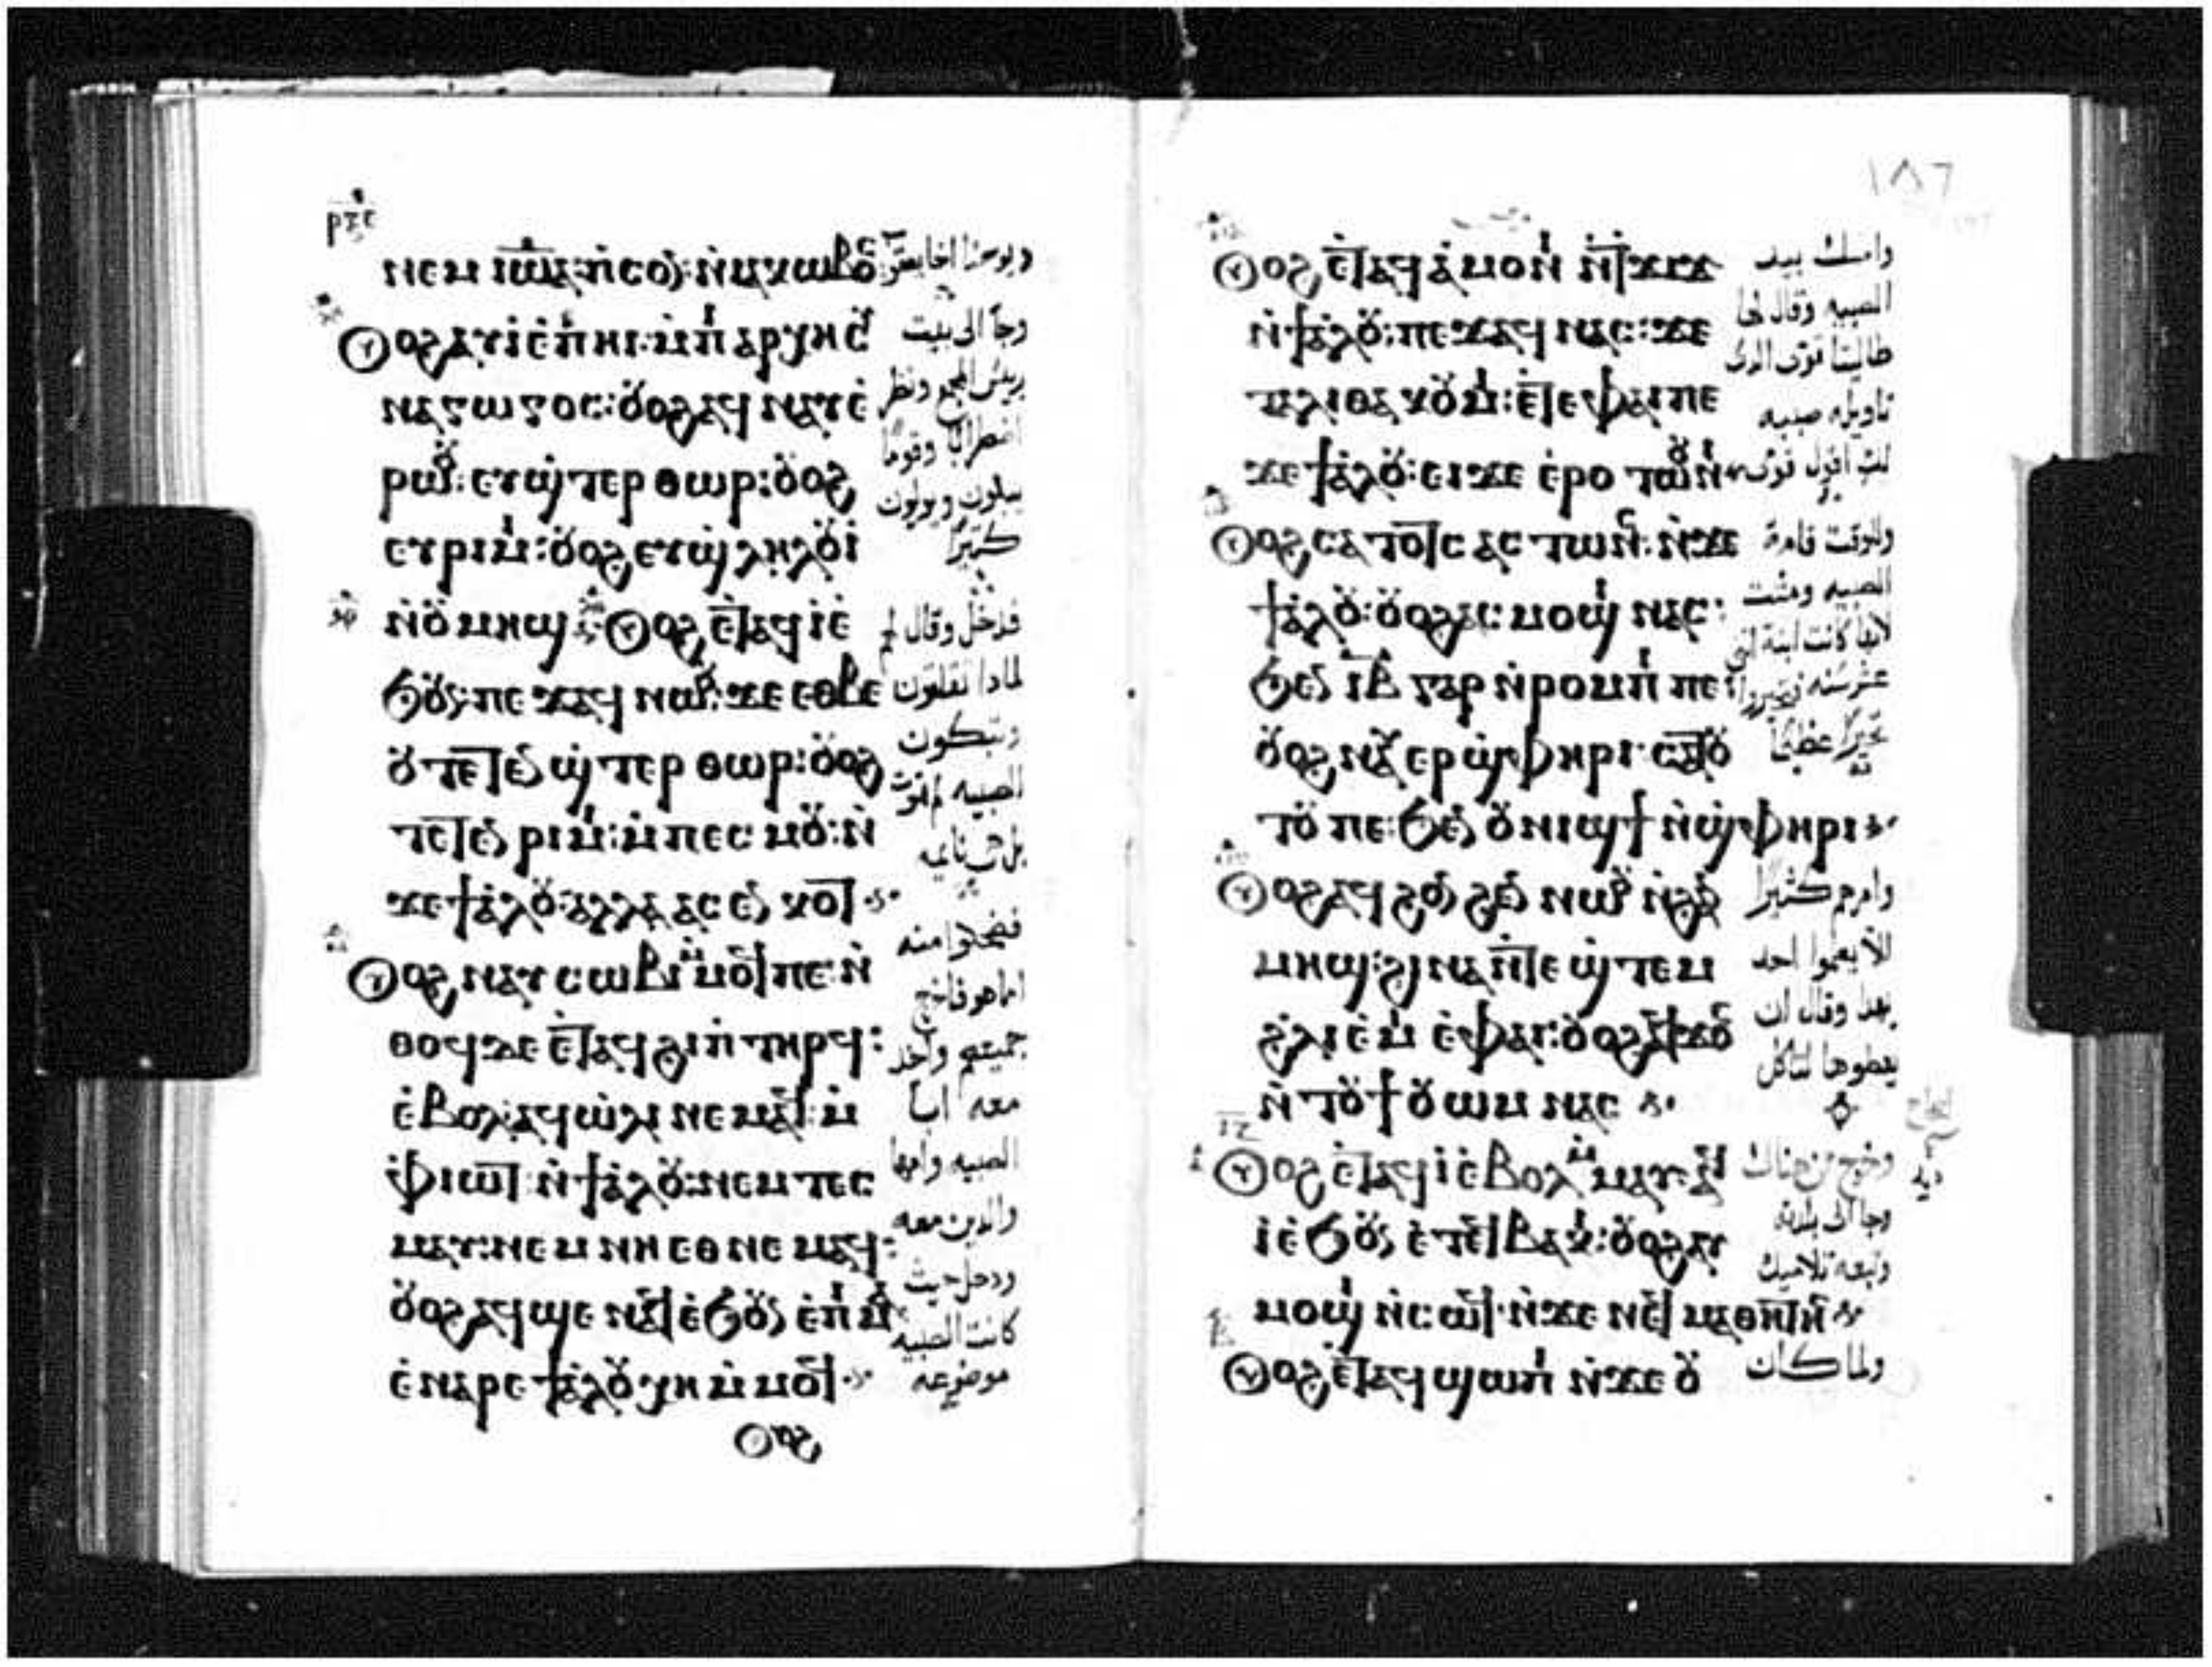 ⲣⲝⲋ
ⲛⲉⲙ ⲓⲱⲁ ⲡⲥⲟⲛ ⲛⲓⲁⲕⲱⲃⲟⲥ
ⲟⲩⲟϩ ⲁⲩⲓ ⲉⲡⲏⲓ ⲙⲡⲁⲣⲭⲏⲥⲩ
ⲛⲁⲅⲱⲅⲟⲥ: ⲟⲩⲟϩ ⲁϥⲛⲁⲩ ⲉ
ⲣⲱⲟⲩ: ⲉⲩϣⲧⲉⲣⲑⲱⲣ: ⲟⲩⲟϩ
ⲉⲩⲣⲓⲙⲓ: ⲟⲩⲟϩ ⲉⲩϣⲗⲏⲗⲟⲩⲓ
ⲛⲟⲩⲙⲏϣ ⲟⲩⲟϩ ⲉⲧⲁϥⲓ ⲉ
ϧⲟⲩⲛ: ⲡⲉϫⲁϥ ⲛⲱⲟⲩ: ϫⲉ ⲉⲑⲃⲉ
ⲟⲩ ⲧⲉⲧⲉⲛϣⲧⲉⲣⲑⲱⲣ: ⲟⲩⲟϩ
ⲧⲉⲧⲉⲛⲣⲓⲙⲓ: ⲙⲡⲉⲥⲙⲟⲩ: ⲛ
ϫⲉ ϯⲁⲗⲟⲩ: ⲁⲗⲗⲁ ⲁⲥⲉⲛⲕⲟⲧ
ⲟⲩⲟϩ ⲛⲁⲩⲥⲱⲃⲓ ⲙⲙⲟϥ ⲡⲉ: ⲛ
ⲑⲟϥ ⲇⲉ ⲉⲧⲁϥϩⲓⲡⲧⲏⲣϥ:
ⲉⲃⲟⲗ: ⲁϥⲱⲗⲓ ⲛⲉⲙⲁϥ: ⲙ
ⲫⲓⲱⲧ: ⲛϯⲁⲗⲟⲩ: ⲛⲉⲙ ⲧⲉⲥ
ⲙⲁⲩ: ⲛⲉⲙ ⲛⲏ ⲉⲑⲛⲉⲙⲁϥ:
ⲟⲩⲟϩ ⲁϥϣⲉ ⲛⲁϥ ⲉϧⲟⲩⲛ ⲉⲡⲙⲁ
ⲉⲛⲁⲣⲉ ϯⲁⲗⲟⲩ ⲭⲏ ⲙⲙⲟϥ
ⲟⲩⲟϩ
ويوحنا اخا يعقوب
وجا الى بيت
ريس المجمع ونظر
اضطرابا وقوما
يبكون ويولولون
كثيرا
فدخل وقال لهم
لماذا تقلقون
وتبكون
الصبيه لم تموت
بل هي نايمه
فضحكوا منه
اما هو فاخرج
جميعهم واخذ
معه ابا
الصبيه وامها
والدين معه
ودخل حيث
كانت الصبيه
موضوعه
١٨٦
ⲟⲩⲟϩ ⲉⲧⲁϥⲁⲙⲟⲛⲓ ⲛⲧϫⲓϫ
ⲛϯⲁⲗⲟⲩ: ⲡⲉϫⲁϥ ⲛⲁⲥ: ϫⲉ
ⲧⲁⲗⲓⲑⲁ ⲕⲟⲩⲙ: ⲉⲧⲉ ⲫⲁⲓ ⲡⲉ
ϫⲉ ϯⲁⲗⲟⲩ: ⲉⲓϫⲉ ⲉⲣⲟ ⲧⲱⲟⲩⲛⲓ
ⲟⲩⲟϩ ⲥⲁⲧⲟⲧⲥ ⲁⲥⲧⲱⲛⲥ: ⲛϫⲉ
ϯⲁⲗⲟⲩ: ⲟⲩⲟϩ ⲁⲥⲙⲟϣⲓ ⲛⲁⲥ:
ϧⲉⲛ ⲓⲃ ⲅⲁⲣ ⲛⲣⲟⲙⲡⲓ ⲡⲉ:
ⲟⲩⲟϩ ⲛⲁⲩⲉⲣϣⲫⲏⲣⲓ ⲥⲁⲧⲟ
ⲧⲟⲩ ⲡⲉ: ϧⲉⲛ ⲟⲩⲛⲓϣϯ ⲛϣⲫⲏⲣⲓ
ⲟⲩⲟϩ ⲁϥϩⲟⲛϩⲉⲛ ⲛⲱⲟⲩ ⲛϩⲁⲛ
ⲙⲏϣ: ϩⲓⲛⲁ ⲛⲧⲉϣⲧⲉⲙ
ϩⲗⲓ ⲉⲙⲓ ⲉⲫⲁⲓ: ⲟⲩⲟϩ ⲁϥϫⲟⲥ
ⲛⲧⲟⲩϯ ⲟⲩⲱⲙ ⲛⲁⲥ
ⲟⲩⲟϩ ⲉⲧⲁϥⲓ ⲉⲃⲟⲗ ⲙⲙⲁⲩ: ⲁϥ
ⲓ ⲉϧⲟⲩⲛ ⲉⲧⲉϥⲃⲁⲕⲓ: ⲟⲩⲟϩ ⲁⲩ
ⲙⲟϣⲓ ⲛⲥⲱϥ: ⲛϫⲉ ⲛⲉϥⲙⲁⲑⲏⲧⲏⲥ
ⲟⲩⲟϩ ⲉⲧⲁϥϣⲱⲡⲓ ⲛϫⲉ ⲟⲩ
وامسك بيد
الصبيه وقال لها
طاليتا قومى الدى
تاويله صبيه
لك اقول قومى
وللوقت قامة
الصبيه ومشت
لانها كانت ابنة اثنى
عشر سنه
تحيرا عظيما
وامرهم كثيرا
الا يعلموا احد
بهدا وقال ان
يعطوها لتاكل
وخرج من هناك
وجا الى بلدته
وتبعه تلاميذه
ولما كان